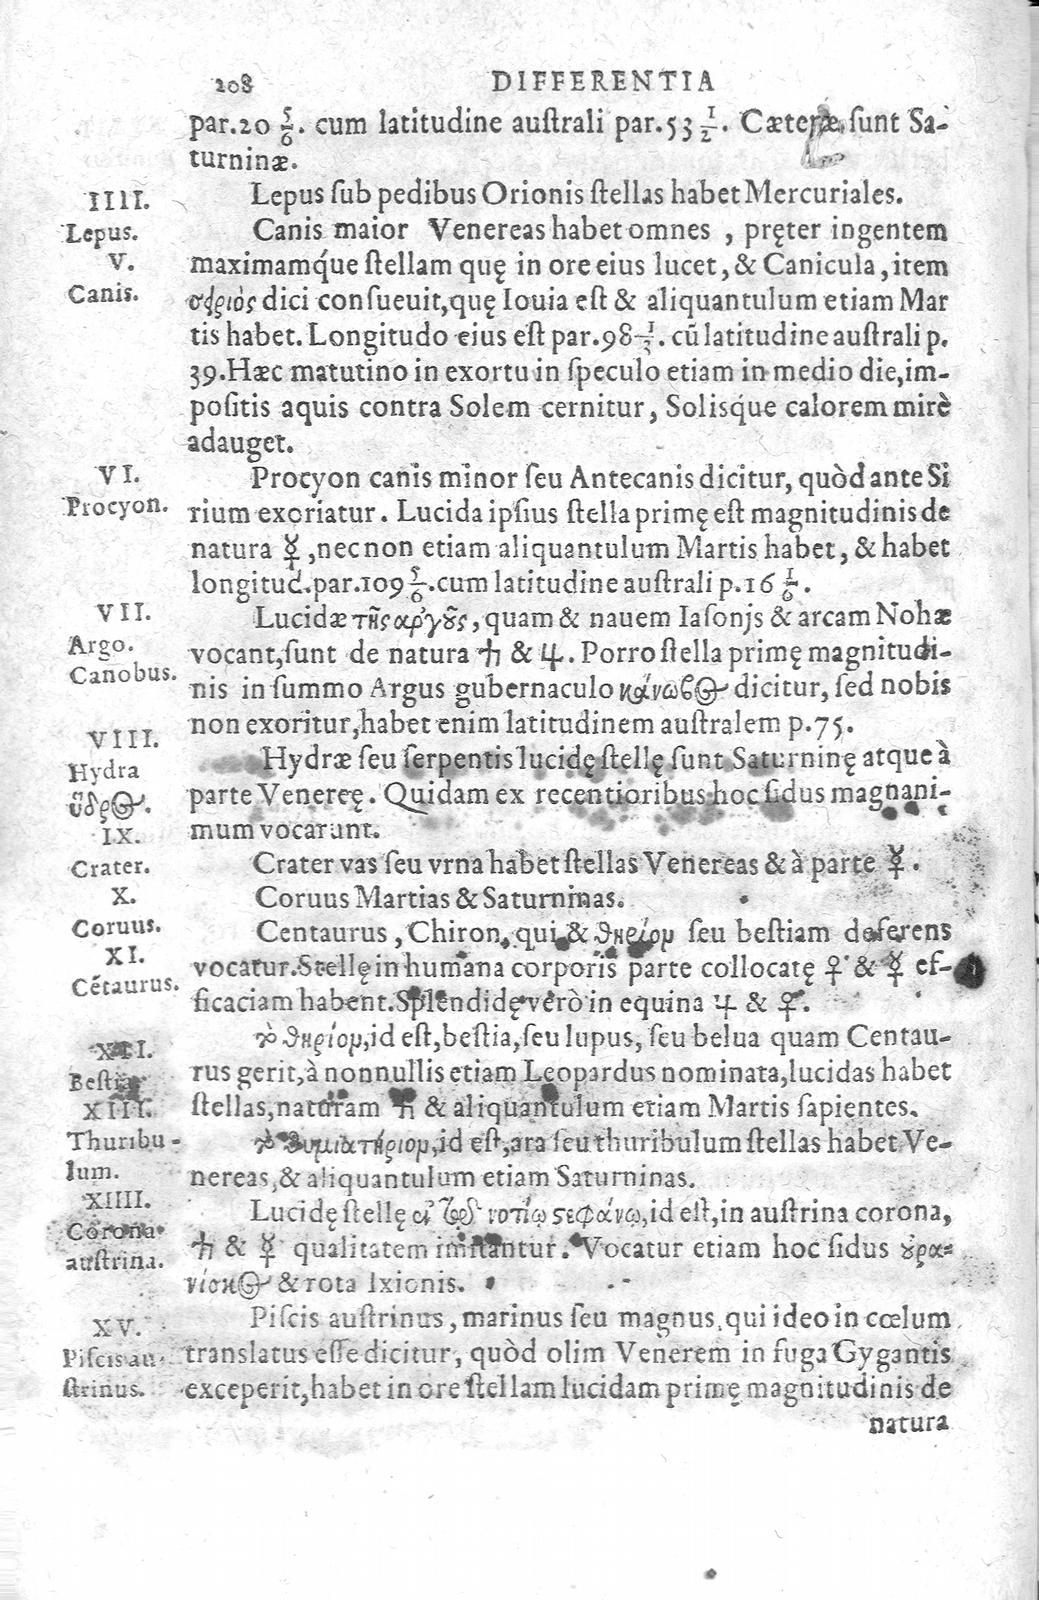 208 DIFFERENTIA
par. 20 5/6. cum latitudine auſtrali par. 53 1/2. Cæteræ ſunt Sa-
turninæ.
IIII.
Lepus.
Lepus ſub pedibus Orionis ſtellas habet Mercuriales.
V.
Canis.
Canis maior Venereas habet omnes, pręter ingentem
maximamq́ue ſtellam quę in ore eius lucet, & Canicula, item
dici conſueuit, quę Iouia eſt & aliquantulum etiam Mar
tis habet. Longitudo eius eſt par. 98 cũ latitudine auſtrali p.
39. Hæc matutino in exortu in ſpeculo etiam in medio die, im-
poſitis aquis contra Solem cernitur, Solisq́ue calorem mirè
adauget.
VI.
Procyon.
Procyon canis minor ſeu Antecanis dicitur, quòd ante Si
rium exoriatur. Lucida ipſius ſtella primę eſt magnitudinis de
natura ☿, nec non etiam aliquantulum Martis habet, & habet
longitud. par. 109 5/6. cum latitudine auſtrali p. 16 1/6.
VII.
Argo.
Canobus.
Lucidæ τῆς ἀργοῦς, quam & nauem Iaſonis & arcam Nohæ
vocant, ſunt de natura ♄ & ♃. Porro ſtella primę magnitudi-
nis in ſummo Argus gubernaculo κάνωβος dicitur, ſed nobis
non exoritur, habet enim latitudinem auſtralem p. 75.
VIII.
Hydra
ὕδρος.
Hydræ ſeu ſerpentis lucidę ſtellę ſunt Saturninę atque à
parte Venereę. Quidam ex recentioribus hoc ſidus magnani-
mum vocarunt.
IX.
Crater.
Crater vas ſeu vrna habet ſtellas Venereas & à parte ☿.
X.
Coruus.
Coruus Martias & Saturninas.
XI.
Cẽtaurus.
Centaurus, Chiron, qui & θηρίον ſeu beſtiam deferens
vocatur. Stellę in humana corporis parte collocatę ♀ & ☿ ef-
ficaciam habent. Splendidę verò in equina ♃ & ♀.
XII.
Beſtia.
τὸ θηρίον, id eſt, beſtia, ſeu lupus, ſeu belua quam Centau-
rus gerit, à nonnullis etiam Leopardus nominata, lucidas habet
ſtellas, naturam ♄ & aliquantulum etiam Martis ſapientes.
XIII.
Thuribu-
lum.
τὸ θυμιατήριον, id eſt, ara ſeu thuribulum ſtellas habet Ve-
nereas, & aliquantulum etiam Saturninas.
XIIII.
Corona
auſtrina.
Lucidę ſtellę ἐν τῷ νοτίῳ ϛεφάνῳ, id eſt, in auſtrina corona,
♄ & ☿ qualitatem imitantur. Vocatur etiam hoc ſidus οὐρα-
νίσκος & rota Ixionis.
XV.
Piſcis au-
ſtrinus.
Piſcis auſtrinus, marinus ſeu magnus, qui ideo in cœlum
translatus eſſe dicitur, quòd olim Venerem in fuga Gygantis
exceperit, habet in ore ſtellam lucidam primę magnitudinis de
natura